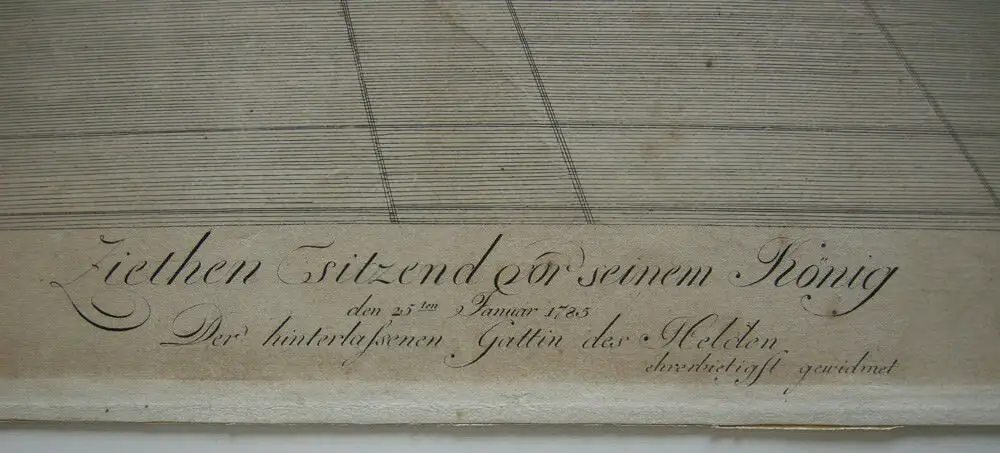 Ziethen sitzend vor seinem König
den 25ten Januar 1785
Der hinterlaſsenen Gattin des Helden
ehrerbietigſt gewidmet